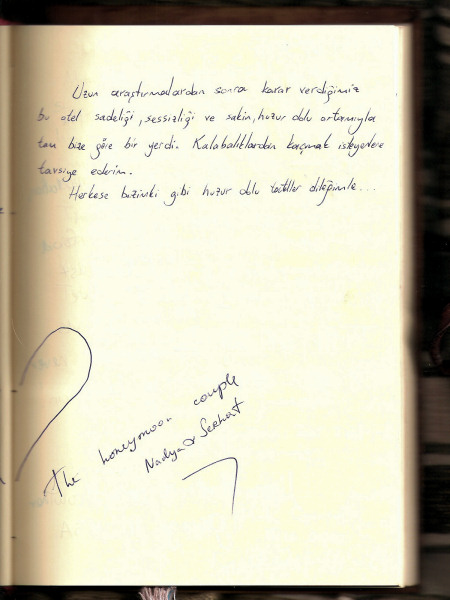 Uzun araştırmalardan sonra karar verdiğimiz
bu otel sadeliği, sessizliği ve sakin, huzur dolu ortamıyla
tam bize göre bir yerdi. Kalabalıklardan kaçmak isteyenlere
tavsiye ederim.
Herkese bizimki gibi huzur dolu tatiller dileğimle...
The honeymoon couple
Nadya & Serhat